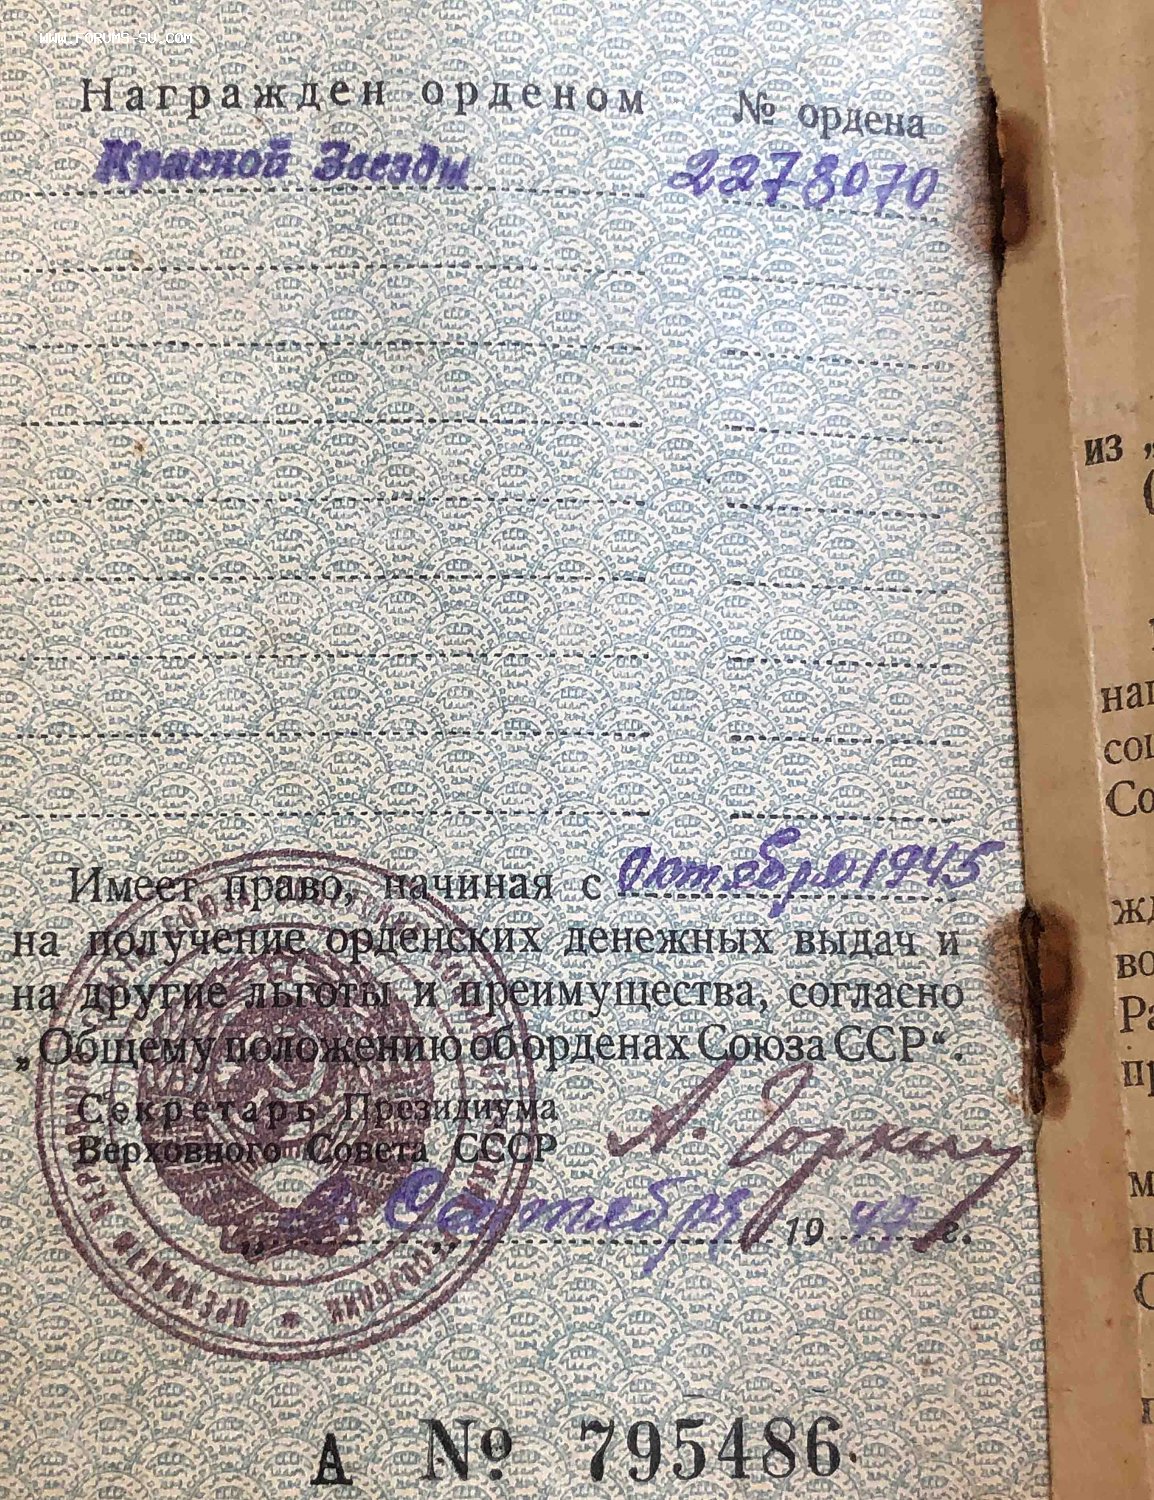 WWW.FORUMS-SU.COM
Награжден орденом № ордена
Красной Звезды 2278070
Имеет право, начиная с Октября 1945
на получение орденских денежных выдач и
на другие льготы и преимущества, согласно
„Общему положению об орденах Союза ССР“.
Секретарь Президиума
Верховного Совета СССР А. Горкин
„ „ Сентября 19 г.
А № 795486
из
наг
соц
Со
жд
во
Ра
пр
м
н
С
п